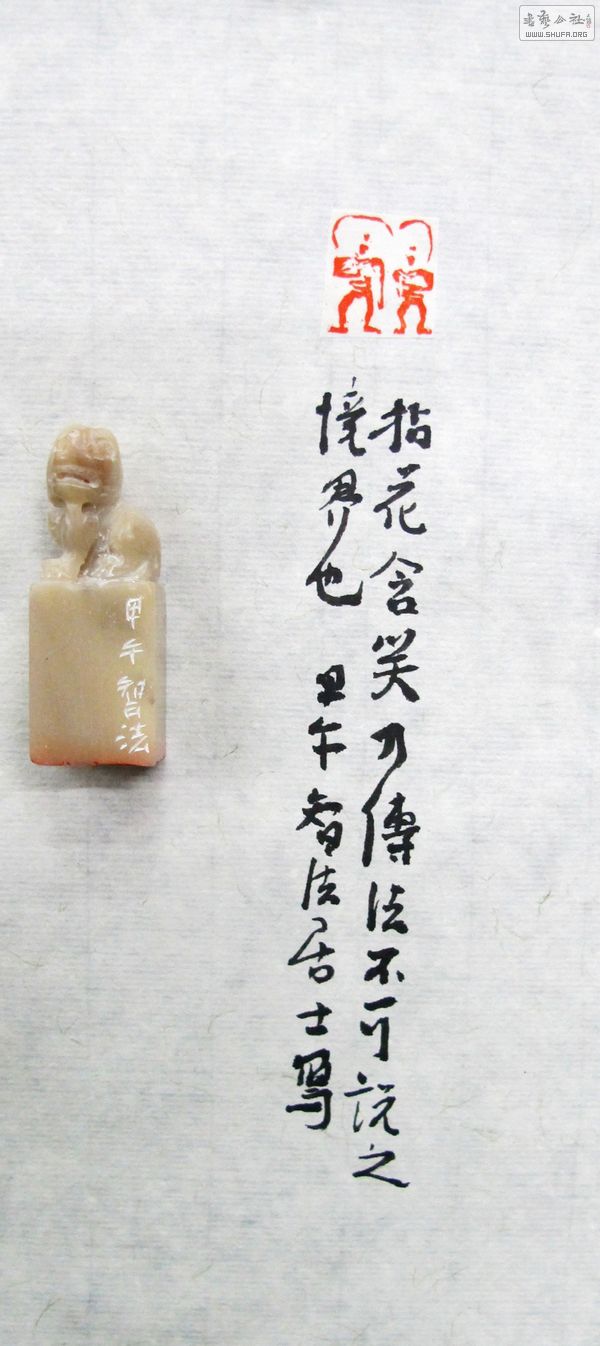 拈花含笑乃傳法不可說之
境界也 甲午智法居士寫
甲午智法
書藝公社
WWW.SHUFA.ORG